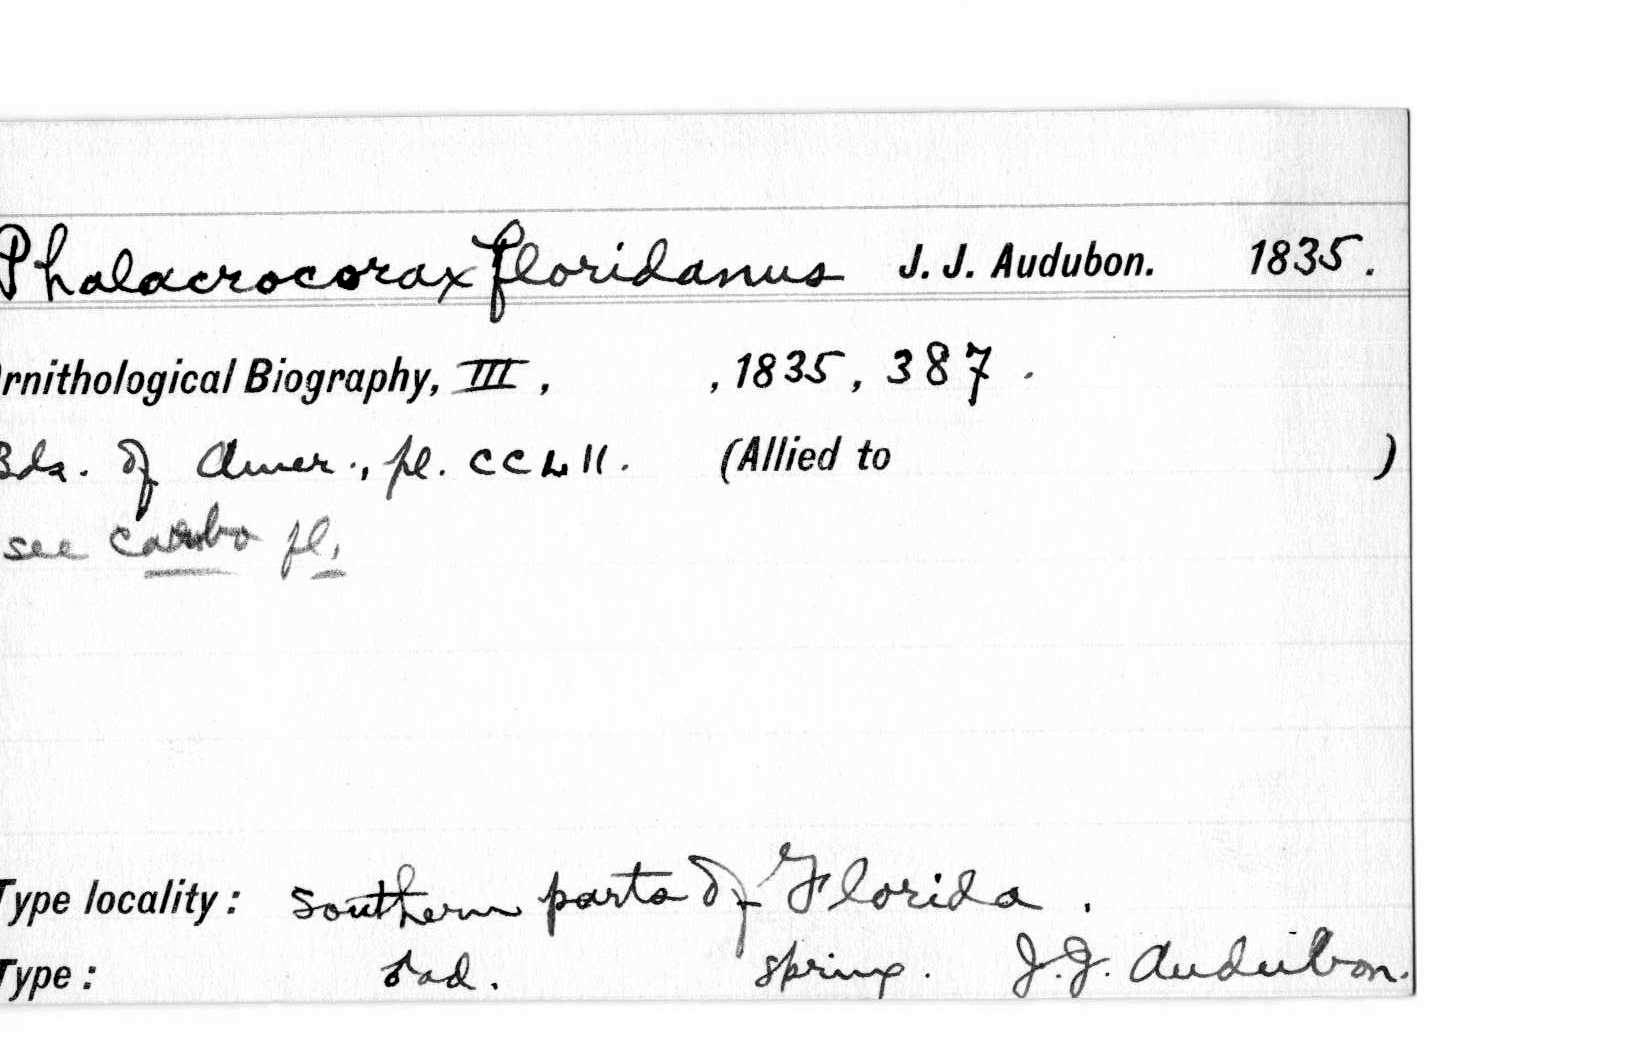 Phalacrocorax floridanus J. J. Audubon. 1835.
rnithological Biography, III, , 1835, 387.
Bds. of Amer., pl. CCLII. (Allied to )
see carbo pl.
Type locality: southern parts of Florida.
Type: ad. spring. J.J. Audubon.